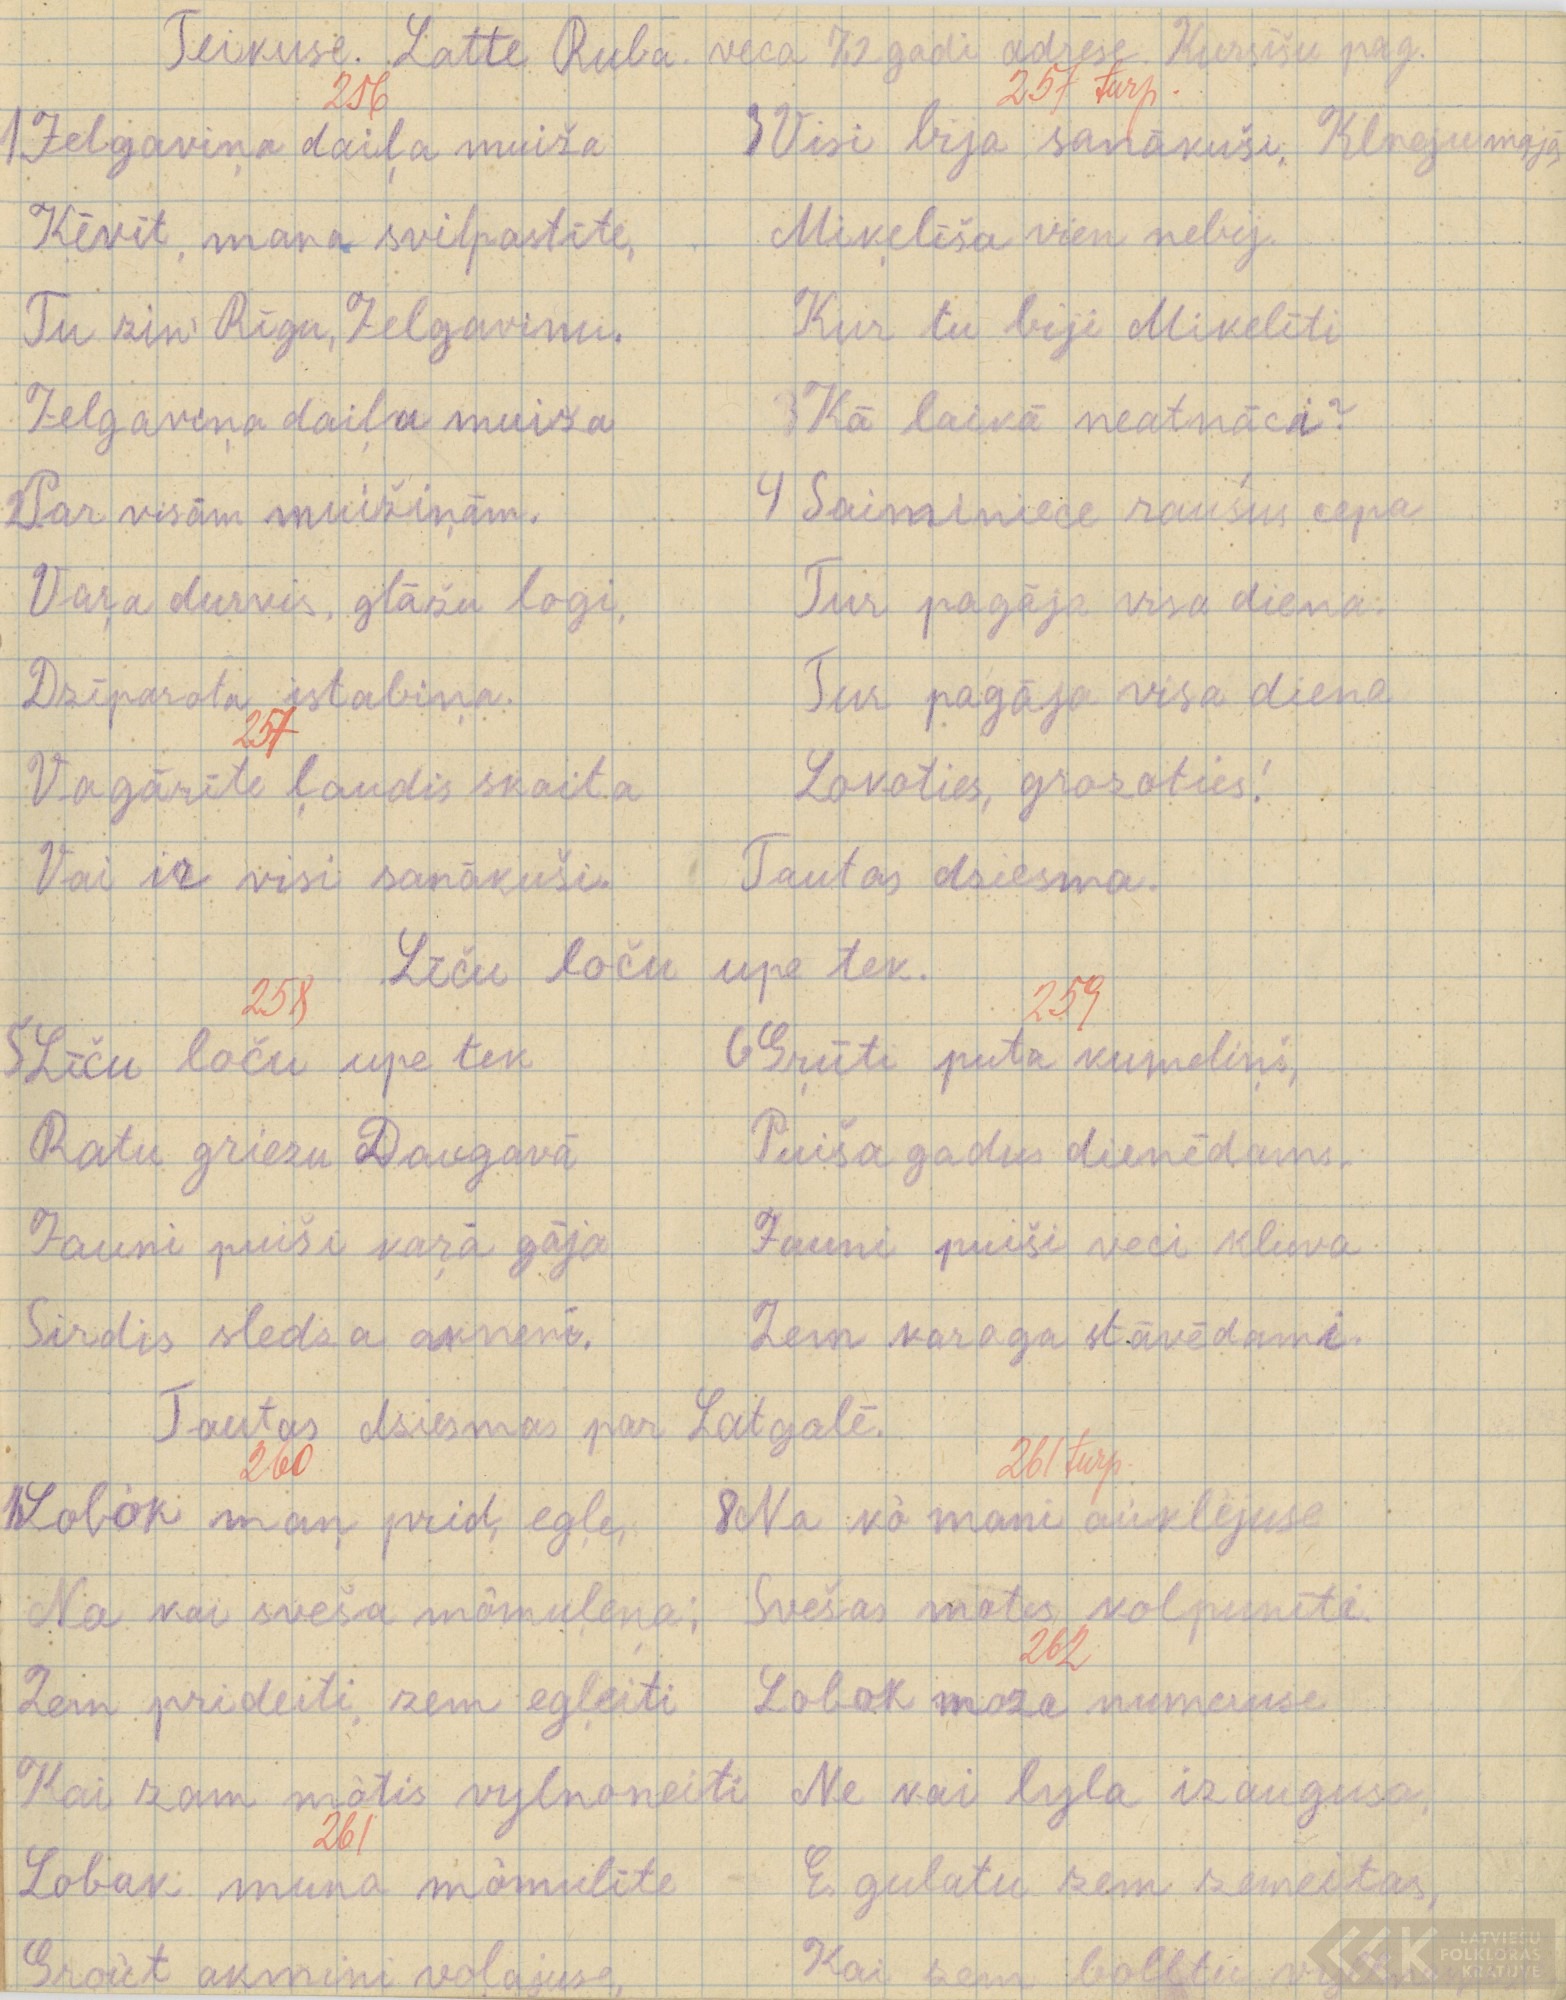 Teikuse. Latte Ruba. veca 72 gadi adrese Kursīšu pag.
256
1 Jelgaviņa daiļa muiža
Ķīvīt, mana svilpastīte,
Tu zin Rīgu, Jelgavinu.
Jelgaviņa daiļa muiza
2 Par visām muižiņām.
Vaŗa durvis, glāžu logi,
Dzīparota istabiņa.
257
Vagārīte ļaudis skaita
Vai ir visi sanākuši.
257 turp.
3 Visi bija sanākuši, māja
Miķelīša vien nebij.
Kur tu biji Mikelīti
3 Kā laikā neatnāci?
4 Saiminiece raušus cepa
Tur pagāja visa diena.
Tur pagāja visa diena
Lokoties, grozoties!
Tautas dziesma.
Līču loču upe tek.
258
5 Līču loču upe tek
Ratu griezu Daugavā
Jauni puiši kaŗā gāja
Sirdis sledza akmenī.
259
6 Gŗūti puta kumeliņš,
Puiša gadus dienēdams.
Jauni puiši veci kluva
Zem karoga stāvēdami.
Tautas dziesmas par Latgalē.
260
Lobòk maņ prid, egļe,
Na kai sveša mòmuļeņa;
Zem prideiti, zem egļeiti
Kai zam mòtis vylnoneiti
261
Lobak muna mòmulīte
Groùt akmini voļajuse,
261 turp.
8 Na kò mani auklējuse
Svešas motes kolpunīti.
262
Lobok moza numeruse
Ne kai lyla izaugusa,
Es gulatu zem zemeitas,
Kai zem
LATVIEŠU
FOLKLORAS
KRĀTUVE